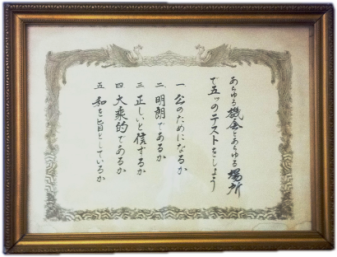 あらゆる機会とあらゆる場所
で五つのテストをしよう
一 公のためになるか
二 明朗であるか
三 正しいと信ずるか
四 大乗的であるか
五 和を旨としているか